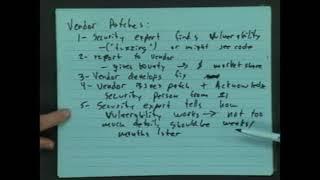 Vendor Patches:
1- Security expert finds vulnerability
- ("fuzzing") or might see code
2- report to vendor
- gives bounty → $ market share
3- Vendor develops fix
4- Vendor issues patch + Acknowledge
security person from #1
5- Security expert tells how
Vulnerability works → not too
much detail should be weeks/
months later